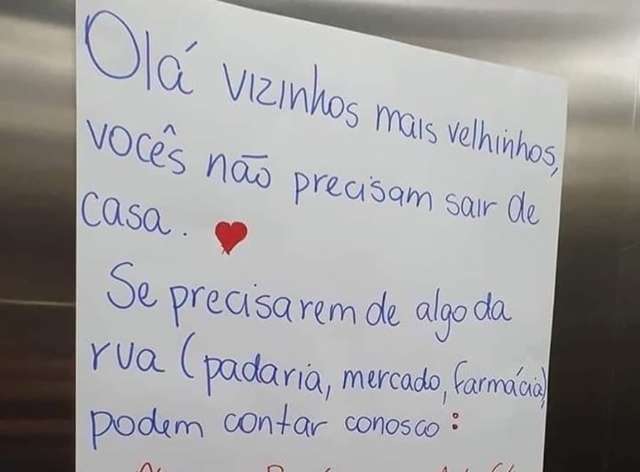 Olá vizinhos mais velhinhos,
vocês não precisam sair de
casa.
Se precisarem de algo da
rua (padaria, mercado, farmácia),
podem contar conosco: